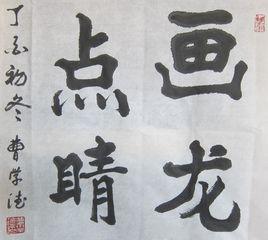 画龙
点睛
丁亥初冬 曹学德